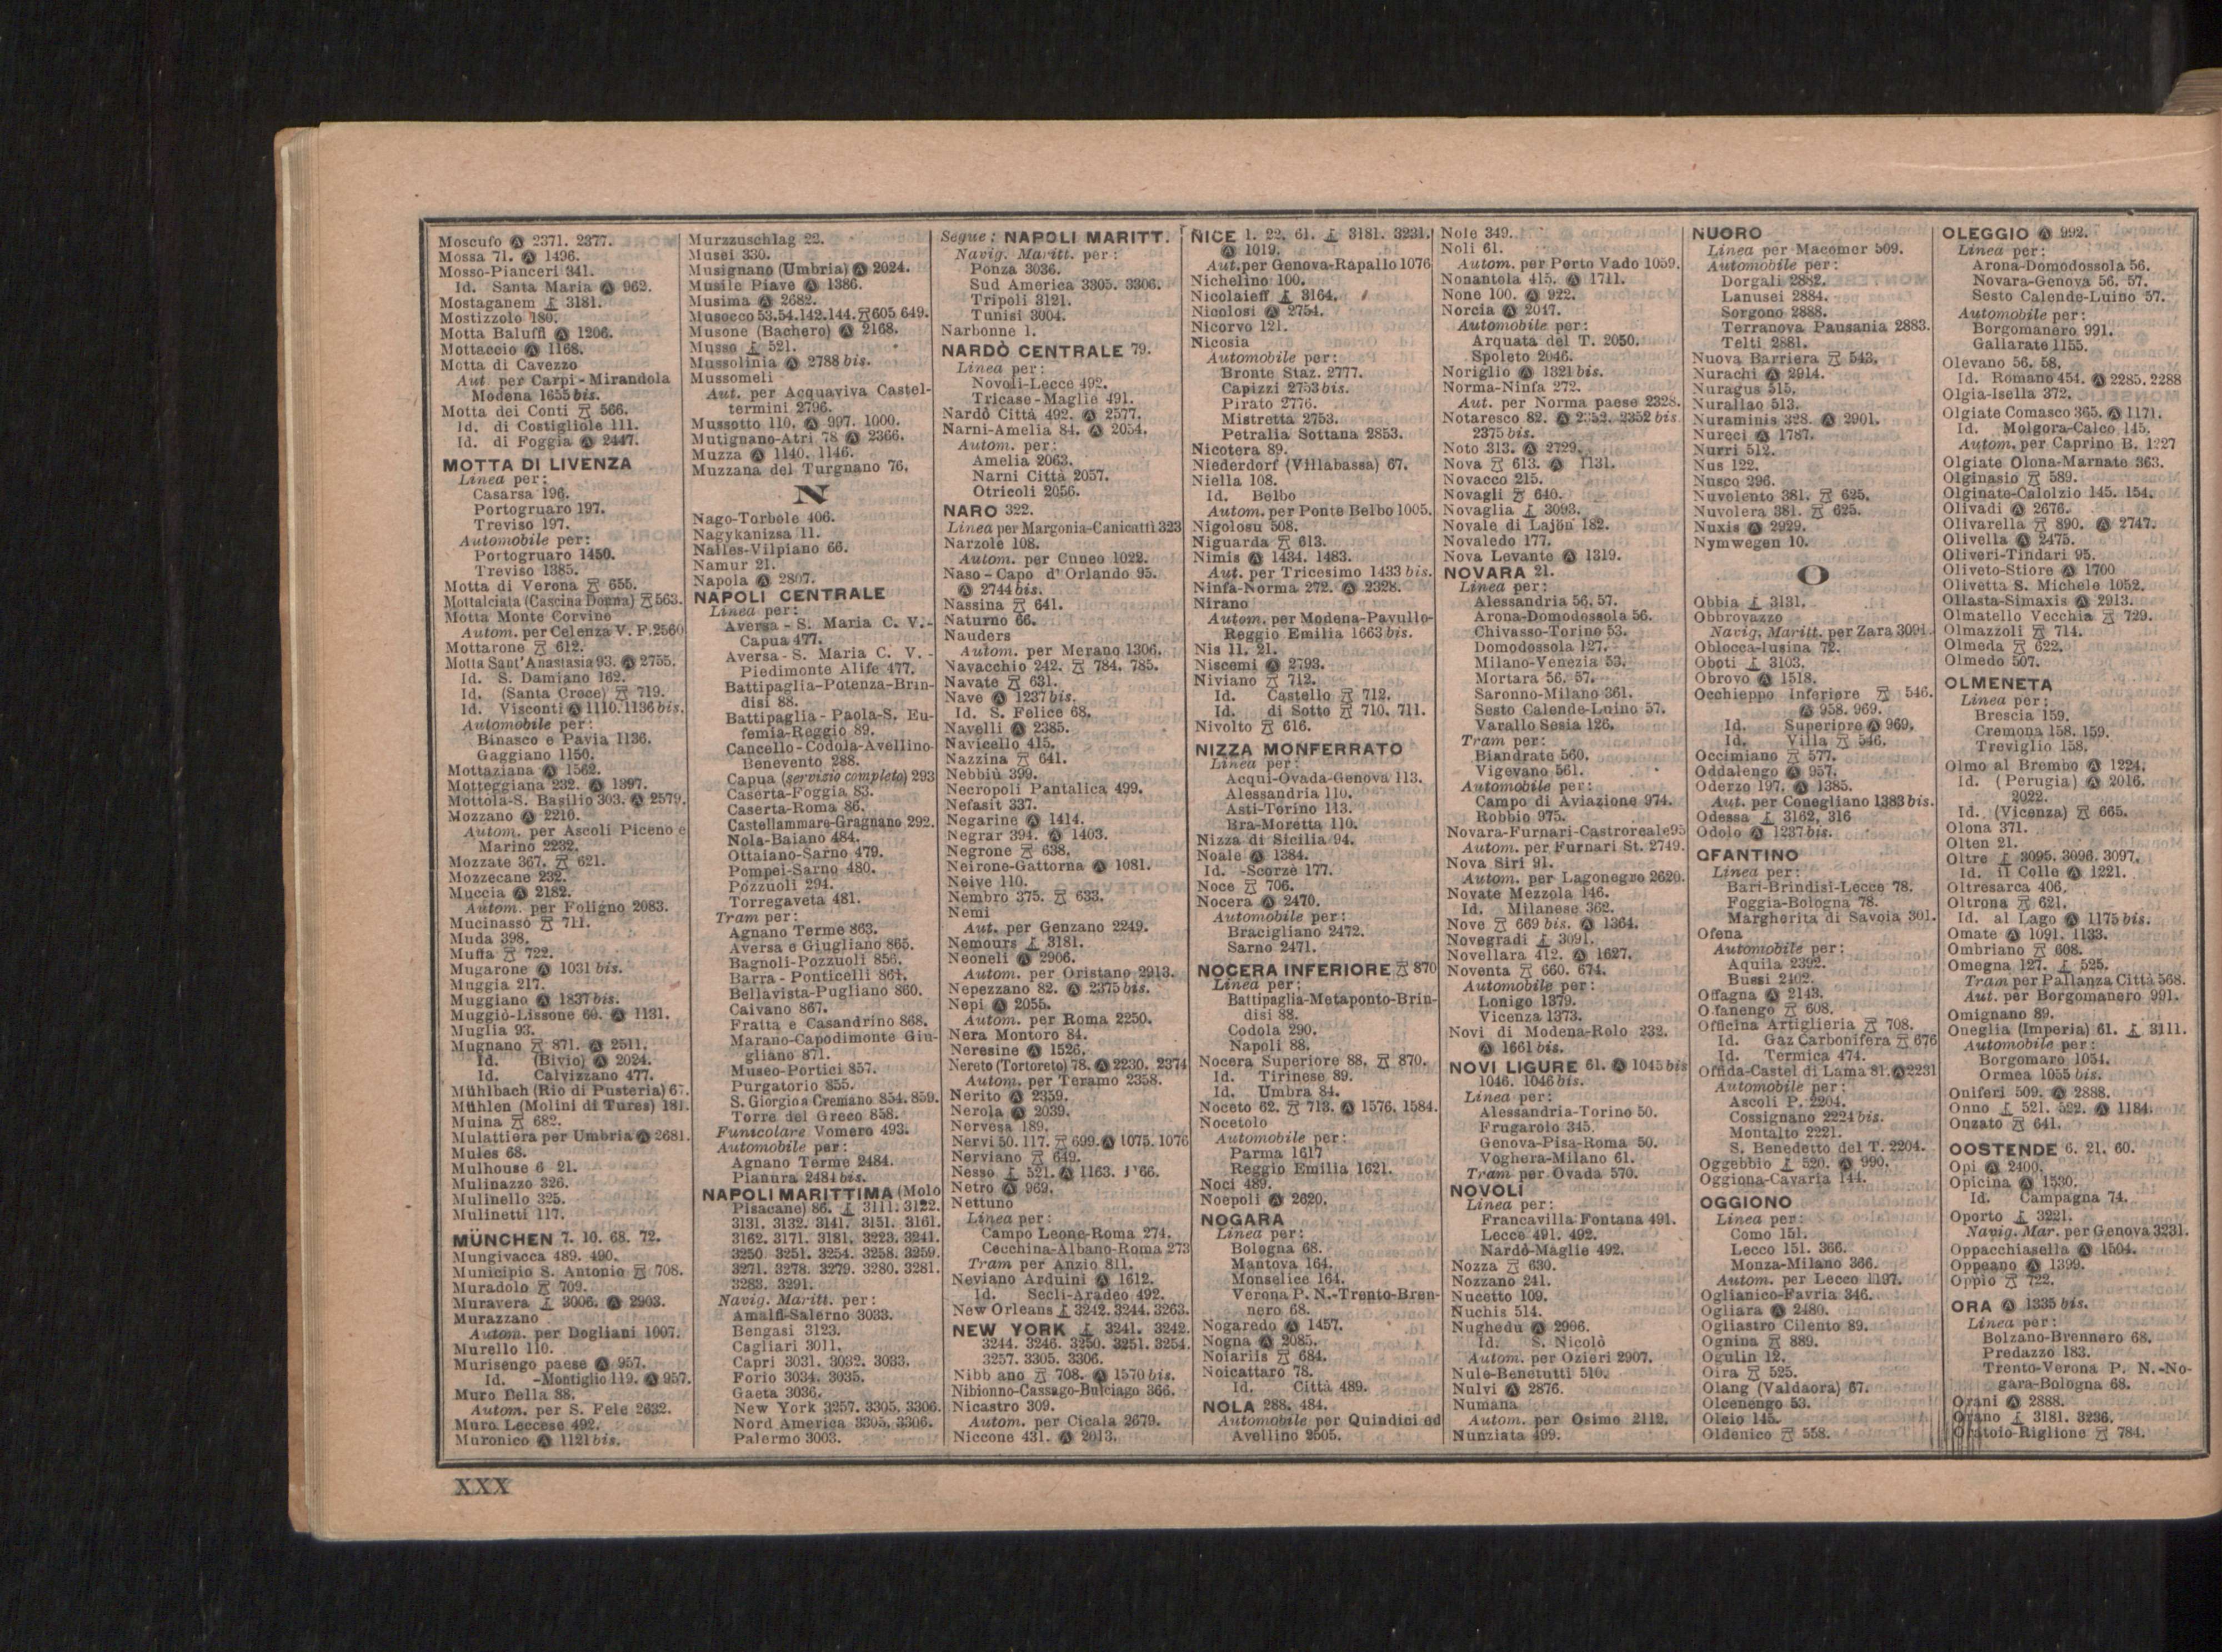 Moscufo Ⓐ 2371. 2377.
Mossa 71. Ⓐ 1496.
Mosso-Pianceri 341.
Id. Santa Maria Ⓐ 962.
Mostaganem ⚓ 3181.
Mostizzolo 180.
Motta Baluffi Ⓐ 1206.
Mottaccio Ⓐ 1168.
Motta di Cavezzo
Aut. per Carpi-Mirandola
Modena 1655 bis.
Motta dei Conti 566.
Id. di Costigliole 111.
Id. di Foggia Ⓐ 2447.
MOTTA DI LIVENZA
Linea per:
Casarsa 196.
Portogruaro 197.
Treviso 197.
Automobile per:
Portogruaro 1450.
Treviso 1385.
Motta di Verona 655.
Mottalciata (Cascina Donna) 563.
Motta Monte Corvino
Autom. per Celenza V. F. 2560
Mottarone 612.
Motta Sant'Anastasia 93. Ⓐ 2755.
Id. S. Damiano 162.
Id. (Santa Croce) 719.
Id. Visconti Ⓐ 1110. 1136 bis.
Automobile per:
Binasco e Pavia 1136.
Gaggiano 1150.
Mottaziana Ⓐ 1562.
Motteggiana 232. Ⓐ 1397.
Mottola-S. Basilio 303. Ⓐ 2579.
Mozzano Ⓐ 2210.
Autom. per Ascoli Piceno e
Marino 2232.
Mozzate 367. 621.
Mozzecane 232.
Muccia Ⓐ 2182.
Autom. per Foligno 2083.
Mucinasso 711.
Muda 398.
Muffa 722.
Mugarone Ⓐ 1031 bis.
Muggia 217.
Muggiano Ⓐ 1837 bis.
Muggiò-Lissone 60. Ⓐ 1131.
Muglia 93.
Mugnano 871. Ⓐ 2511.
Id. (Bivio) Ⓐ 2024.
Id. Calvizzano 477.
Mühlbach (Rio di Pusteria) 67.
Mühlen (Molini di Tures) 181.
Muina 682.
Mulattiera per Umbria Ⓐ 2681.
Mules 68.
Mulhouse 6 21.
Mulinazzo 326.
Mulinello 325.
Mulinetti 117.
MÜNCHEN 7. 10. 68. 72.
Mungivacca 489. 490.
Municipio S. Antonio 708.
Muradolo 709.
Muravera ⚓ 3006. Ⓐ 2903.
Murazzano
Autom. per Dogliani 1007.
Murello 110.
Murisengo paese Ⓐ 957.
Id. -Montiglio 119. Ⓐ 957.
Muro Bella 88.
Autom. per S. Fele 2632.
Muro Leccese 492.
Muronico Ⓐ 1121 bis.
Murzzuschlag 22.
Musei 330.
Musignano (Umbria) Ⓐ 2024.
Musile Piave Ⓐ 1386.
Musima Ⓐ 2682.
Musocco 53.54.142.144. 605 649.
Musone (Bachero) Ⓐ 2168.
Musso ⚓ 521.
Mussolinia Ⓐ 2788 bis.
Mussomeli
Aut. per Acquaviva Castel-
termini 2796.
Mussotto 110. Ⓐ 997. 1000.
Mutignano-Atri 78 Ⓐ 2366.
Muzza Ⓐ 1140. 1146.
Muzzana del Turgnano 76.
N
Nago-Torbole 406.
Nagykanizsa 11.
Nalles-Vilpiano 66.
Namur 21.
Napola Ⓐ 2807.
NAPOLI CENTRALE
Linea per:
Aversa - S. Maria C. V.-
Capua 477.
Aversa - S. Maria C. V. -
Piedimonte Alife 477.
Battipaglia-Potenza-Brin-
disi 88.
Battipaglia - Paola-S. Eu-
femia-Reggio 89.
Cancello-Codola-Avellino-
Benevento 288.
Capua (servizio completo) 293
Caserta-Foggia 83.
Caserta-Roma 86.
Castellammare-Gragnano 292.
Nola-Baiano 484.
Ottaiano-Sarno 479.
Pompei-Sarno 480.
Pozzuoli 294.
Torregaveta 481.
Tram per:
Agnano Terme 863.
Aversa e Giugliano 865.
Bagnoli-Pozzuoli 856.
Barra - Ponticelli 864.
Bellavista-Pugliano 860.
Caivano 867.
Fratta e Casandrino 868.
Marano-Capodimonte Giu-
gliano 871.
Museo-Portici 857.
Purgatorio 855.
S. Giorgio a Cremano 854. 859.
Torre del Greco 858.
Funicolare Vomero 493.
Automobile per:
Agnano Terme 2484.
Pianura 2484 bis.
NAPOLI MARITTIMA (Molo
Pisacane) 86. ⚓ 3111. 3122.
3131. 3132. 3141. 3151. 3161.
3162. 3171. 3181. 3223. 3241.
3250. 3251. 3254. 3258. 3259.
3271. 3278. 3279. 3280. 3281.
3283. 3291.
Navig. Maritt. per:
Amalfi-Salerno 3033.
Bengasi 3123.
Cagliari 3011.
Capri 3031. 3032. 3033.
Forio 3034. 3035.
Gaeta 3036.
New York 3257. 3305. 3306.
Nord America 3305. 3306.
Palermo 3003.
Segue: NAPOLI MARITT.
Navig. Maritt. per:
Ponza 3036.
Sud America 3305. 3306.
Tripoli 3121.
Tunisi 3004.
Narbonne 1.
NARDÒ CENTRALE 79.
Linea per:
Novoli-Lecce 492.
Tricase-Maglie 491.
Nardò Città 492. Ⓐ 2577.
Narni-Amelia 84. Ⓐ 2054.
Autom. per:
Amelia 2063.
Narni Città 2057.
Otricoli 2056.
NARO 322.
Linea per Margonia-Canicattì 323
Narzole 108.
Autom. per Cuneo 1022.
Naso - Capo d'Orlando 95.
Ⓐ 2744 bis.
Nassina 641.
Naturno 66.
Nauders
Autom. per Merano 1306.
Navacchio 242. 784. 785.
Navate 631.
Nave Ⓐ 1237 bis.
Id. S. Felice 68.
Navelli Ⓐ 2385.
Navicello 415.
Nazzina 641.
Nebbiù 399.
Necropoli Pantalica 499.
Nefasit 337.
Negarine Ⓐ 1414.
Negrar 394. Ⓐ 1403.
Negrone 638.
Neirone-Gattorna Ⓐ 1081.
Neive 110.
Nembro 375. 633.
Nemi
Aut. per Genzano 2249.
Nemours ⚓ 3181.
Neoneli Ⓐ 2906.
Autom. per Oristano 2913.
Nepezzano 82. Ⓐ 2375 bis.
Nepi Ⓐ 2055.
Autom. per Roma 2250.
Nera Montoro 84.
Neresine Ⓐ 1526.
Nereto (Tortoreto) 78. Ⓐ 2230. 2374
Autom. per Teramo 2358.
Nerito Ⓐ 2359.
Nerola Ⓐ 2039.
Nervesa 189.
Nervi 50. 117. 699. Ⓐ 1075. 1076
Nerviano 649.
Nesso ⚓ 521. Ⓐ 1163.
Netro Ⓐ 969.
Nettuno
Linea per:
Campo Leone-Roma 274.
Cecchina-Albano-Roma 273
Tram per Anzio 811.
Neviano Arduini Ⓐ 1612.
Id. Secli-Aradeo 492.
New Orleans ⚓ 3242. 3244. 3263.
NEW YORK ⚓ 3241. 3242.
3244. 3246. 3250. 3251. 3254.
3257. 3305. 3306.
Nibb ano 708. Ⓐ 1570 bis.
Nibionno-Cassago-Bulciago 366.
Nicastro 309.
Autom. per Cicala 2679.
Niccone 431. Ⓐ 2013.
NICE 1. 22. 61. ⚓ 3181. 3231.
Ⓐ 1019.
Aut. per Genova-Rapallo 1076
Nichelino 100.
Nicolaieff ⚓ 3164.
Nicolosi Ⓐ 2754.
Nicorvo 121.
Nicosia
Automobile per:
Bronte Staz. 2777.
Capizzi 2753 bis.
Pirato 2776.
Mistretta 2753.
Petralia Sottana 2853.
Nicotera 89.
Niederdorf (Villabassa) 67.
Niella 108.
Id. Belbo
Autom. per Ponte Belbo 1005.
Nigolosu 508.
Niguarda 613.
Nimis Ⓐ 1434. 1483.
Aut. per Tricesimo 1433 bis.
Ninfa-Norma 272. Ⓐ 2328.
Nirano
Autom. per Modena-Pavullo-
Reggio Emilia 1663 bis.
Nis 11. 21.
Niscemi Ⓐ 2793.
Niviano 712.
Id. Castello 712.
Id. di Sotto 710. 711.
Nivolto 616.
NIZZA MONFERRATO
Linea per:
Acqui-Ovada-Genova 113.
Alessandria 110.
Asti-Torino 113.
Bra-Moretta 110.
Nizza di Sicilia 94.
Noale Ⓐ 1384.
Id. -Scorzè 177.
Noce 706.
Nocera Ⓐ 2470.
Automobile per:
Bracigliano 2472.
Sarno 2471.
NOCERA INFERIORE 870
Linea per:
Battipaglia-Metaponto-Brin-
disi 88.
Codola 290.
Napoli 88.
Nocera Superiore 88. 870.
Id. Tirinese 89.
Id. Umbra 84.
Noceto 62. 713. Ⓐ 1576. 1584.
Nocetolo
Automobile per:
Parma 1617
Reggio Emilia 1621.
Noci 489.
Noepoli Ⓐ 2620.
NOGARA
Linea per:
Bologna 68.
Mantova 164.
Monselice 164.
Verona P. N.-Trento-Bren-
nero 68.
Nogaredo Ⓐ 1457.
Nogna Ⓐ 2085.
Nolariis 684.
Noicattaro 78.
Id. Città 489.
NOLA 288. 484.
Automobile per Quindici ed
Avellino 2505.
Nole 349.
Noli 61.
Autom. per Porto Vado 1059.
Nonantola 415. Ⓐ 1711.
None 100. Ⓐ 922.
Norcia Ⓐ 2047.
Automobile per:
Arquata del T. 2050.
Spoleto 2046.
Noriglio Ⓐ 1321 bis.
Norma-Ninfa 272.
Aut. per Norma paese 2328.
Notaresco 82. Ⓐ 2352. 2352 bis
2375 bis.
Noto 313. Ⓐ 2729.
Nova 613. Ⓐ 1131.
Novacco 215.
Novagli 640.
Novaglia ⚓ 3093.
Novale di Lajön 182.
Novaledo 177.
Nova Levante Ⓐ 1319.
NOVARA 21.
Linea per:
Alessandria 56. 57.
Arona-Domodossola 56.
Chivasso-Torino 53.
Domodossola 127.
Milano-Venezia 53.
Mortara 56. 57.
Saronno-Milano 361.
Sesto Calende-Luino 57.
Varallo Sesia 126.
Tram per:
Biandrate 560.
Vigevano 561.
Automobile per:
Campo di Aviazione 974.
Robbio 975.
Novara-Furnari-Castroreale 95
Autom. per Furnari St. 2749.
Nova Siri 91.
Autom. per Lagonegro 2620.
Novate Mezzola 146.
Id. Milanese 362.
Nove 669 bis. Ⓐ 1364.
Novegradi ⚓ 3091.
Novellara 412. Ⓐ 1627.
Noventa 660. 674.
Automobile per:
Lonigo 1379.
Vicenza 1373.
Novi di Modena-Rolo 232.
Ⓐ 1661 bis.
NOVI LIGURE 61. Ⓐ 1045 bis
1046. 1046 bis.
Linea per:
Alessandria-Torino 50.
Frugarolo 345.
Genova-Pisa-Roma 50.
Voghera-Milano 61.
Tram per Ovada 570.
NOVOLI
Linea per:
Francavilla Fontana 491.
Lecce 491. 492.
Nardò-Maglie 492.
Nozza 630.
Nozzano 241.
Nucetto 109.
Nuchis 514.
Nughedu Ⓐ 2906.
Id. S. Nicolò
Autom. per Ozieri 2907.
Nule-Benetutti 510.
Nulvi Ⓐ 2876.
Numana
Autom. per Osimo 2112.
Nunziata 499.
NUORO
Linea per Macomer 509.
Automobile per:
Dorgali 2882.
Lanusei 2884.
Sorgono 2888.
Terranova Pausania 2883.
Telti 2881.
Nuova Barriera 543.
Nurachi Ⓐ 2914.
Nuragus 515.
Nurallao 513.
Nuraminis 328. Ⓐ 2901.
Nureci Ⓐ 1787.
Nurri 512.
Nus 122.
Nusco 296.
Nuvolento 381. 625.
Nuvolera 381. 625.
Nuxis Ⓐ 2929.
Nymwegen 10.
O
Obbia ⚓ 3131.
Obbrovazzo
Navig. Maritt. per Zara 3091.
Oblocca-Iusina 72.
Oboti ⚓ 3103.
Obrovo Ⓐ 1518.
Occhieppo Inferiore 546.
Ⓐ 958. 969.
Id. Superiore Ⓐ 969.
Id. Villa 546.
Occimiano 577.
Oddalengo Ⓐ 957.
Oderzo 197. Ⓐ 1385.
Aut. per Conegliano 1383 bis.
Odessa ⚓ 3162. 316
Odolo Ⓐ 1237 bis.
OFANTINO
Linea per:
Bari-Brindisi-Lecce 78.
Foggia-Bologna 78.
Margherita di Savoia 301.
Ofena
Automobile per:
Aquila 2392.
Bussi 2402.
Offagna Ⓐ 2143.
Offanengo 608.
Officina Artiglieria 708.
Id. Gaz Carbonifera 676
Id. Termica 474.
Offida-Castel di Lama 81. Ⓐ 2231
Automobile per:
Ascoli P. 2204.
Cossignano 2224 bis.
Montalto 2221.
S. Benedetto del T. 2204.
Oggebbio ⚓ 520. Ⓐ 990.
Oggiona-Cavaria 144.
OGGIONO
Linea per:
Como 151.
Lecco 151. 366.
Monza-Milano 366.
Autom. per Lecco 1197.
Oglianico-Favria 346.
Ogliara Ⓐ 2480.
Ogliastro Cilento 89.
Ognina 889.
Ogulin 12.
Oira 525.
Olang (Valdaora) 67.
Olcenengo 53.
Olcio 145.
Oldenico 558.
OLEGGIO Ⓐ 992.
Linea per:
Arona-Domodossola 56.
Novara-Genova 56. 57.
Sesto Calende-Luino 57.
Automobile per:
Borgomanero 991.
Gallarate 1155.
Olevano 56. 58.
Id. Romano 454. Ⓐ 2285. 2288
Olgia-Isella 372.
Olgiate Comasco 365. Ⓐ 1171.
Id. Molgora-Calco 145.
Autom. per Caprino B. 1227
Olgiate Olona-Marnate 363.
Olginasio 589.
Olginate-Calolzio 145. 154.
Olivadi Ⓐ 2676.
Olivarella 890. Ⓐ 2747.
Olivella Ⓐ 2475.
Oliveri-Tindari 95.
Oliveto-Stiore Ⓐ 1700
Olivetta S. Michele 1052.
Ollasta-Simaxis Ⓐ 2913.
Olmatello Vecchia 729.
Olmazzoli 714.
Olmeda 622.
Olmedo 507.
OLMENETA
Linea per:
Brescia 159.
Cremona 158. 159.
Treviglio 158.
Olmo al Brembo Ⓐ 1224.
Id. (Perugia) Ⓐ 2016.
2022.
Id. (Vicenza) 665.
Olona 371.
Olten 21.
Oltre ⚓ 3095. 3096. 3097.
Id. il Colle Ⓐ 1221.
Oltresarca 406.
Oltrona 621.
Id. al Lago Ⓐ 1175 bis.
Omate Ⓐ 1091. 1133.
Ombriano 608.
Omegna 127. ⚓ 525.
Tram per Pallanza Città 568.
Aut. per Borgomanero 991.
Omignano 89.
Oneglia (Imperia) 61. ⚓ 3111.
Automobile per:
Borgomaro 1054.
Ormea 1055 bis.
Oniferi 509. Ⓐ 2888.
Onno ⚓ 521. 522. Ⓐ 1184.
Onzato 641.
OOSTENDE 6. 21. 60.
Opi Ⓐ 2400.
Opicina Ⓐ 1530.
Id. Campagna 74.
Oporto ⚓ 3221.
Navig. Mar. per Genova 3231.
Oppacchiasella Ⓐ 1504.
Oppeano Ⓐ 1399.
Oppio 722.
ORA Ⓐ 1335 bis.
Linea per:
Bolzano-Brennero 68.
Predazzo 183.
Trento-Verona P. N.-No-
gara-Bologna 68.
Orani Ⓐ 2888.
Orano ⚓ 3181. 3236.
Oratoio-Riglione 784.
XXX